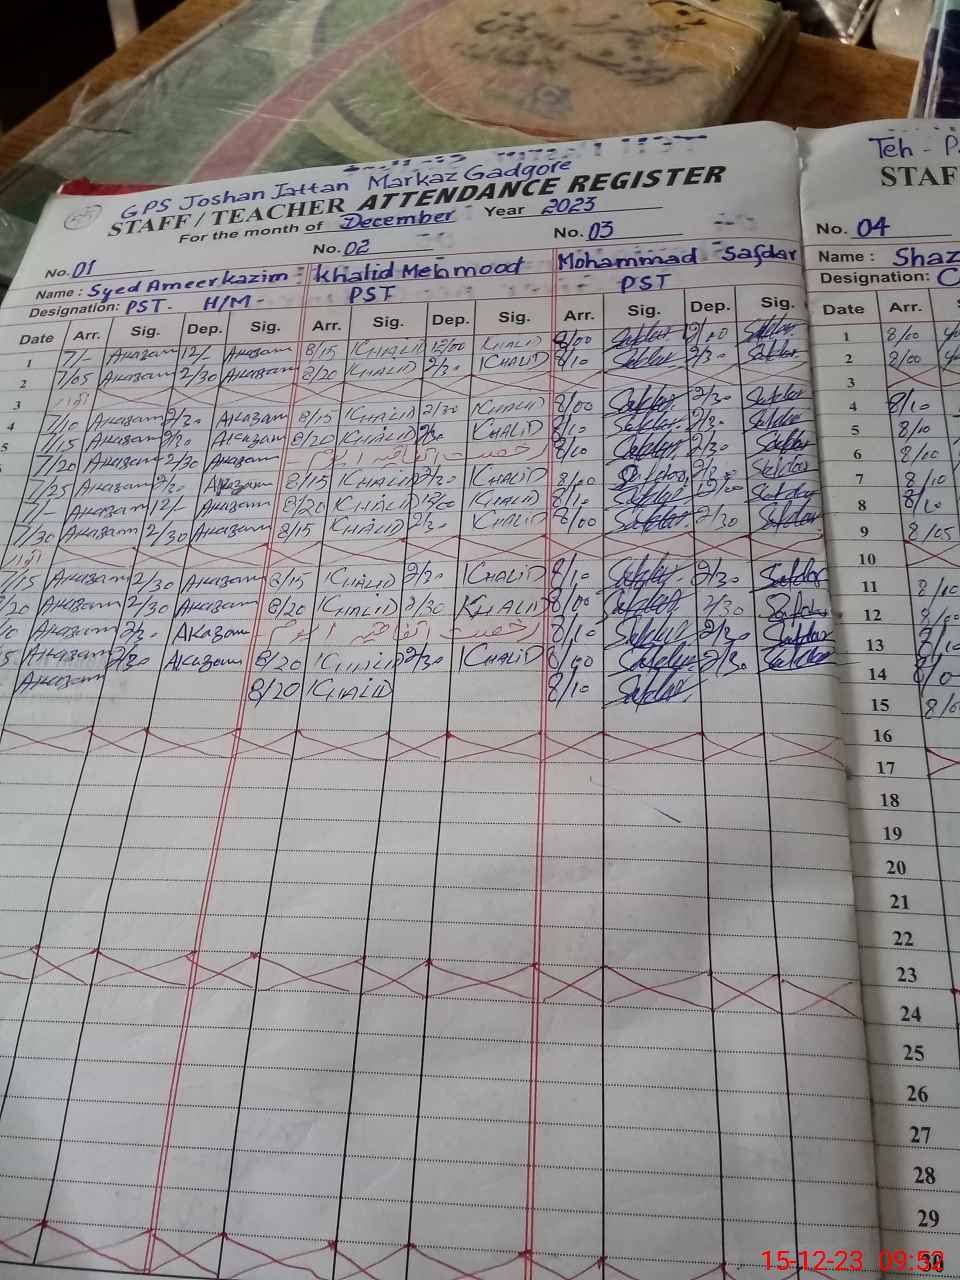 GPS Joshan Jattan Markaz Gadgore
STAFF/TEACHER ATTENDANCE REGISTER
For the month of December Year 2023
No. 01 No. 02 No. 03
Name: Syed Ameer kazim Khalid Mehmood Mohammad Safdar
Designation: PST - H/M - PST PST
Date Arr. Sig. Dep. Sig. Arr. Sig. Dep. Sig. Arr. Sig. Dep. Sig.
1 7/- Akazam 12/- Akazam 8/15 KHALID 12/00 KHALID 8/00 Safdar 12/00 Safdar
2 7/05 Akazam 2/30 Akazam 8/20 KHALID 2/30 KHALID 8/10 Safdar 2/30 Safdar
3 اتوار
4 7/10 Akazam 2/30 Akazam 8/15 KHALID 2/30 KHALID 8/00 Safdar 2/30 Safdar
5 7/15 Akazam 2/30 Akazam 8/20 KHALID 2/30 KHALID 8/10 Safdar 2/30 Safdar
7/20 Akazam 2/30 Akazam رخصت اتفاقیہ ایوم 8/00 Safdar 2/30 Safdar
7/25 Akazam 2/30 Akazam 8/15 KHALID 2/30 KHALID 8/00 Safdar 2/30 Safdar
7/- Akazam 12/- Akazam 8/20 KHALID 12/00 KHALID 8/10 Safdar 12/00 Safdar
7/30 Akazam 2/30 Akazam 8/15 KHALID 2/30 KHALID 8/00 Safdar 2/30 Safdar
اتوار
7/15 Akazam 2/30 Akazam 8/15 KHALID 2/30 KHALID 8/10 Safdar 2/30 Safdar
/20 Akazam 2/30 Akazam 8/20 KHALID 2/30 KHALID 8/00 Safdar 2/30 Safdar
/10 Akazam 2/30 Akazam رخصت اتفاقیہ ایوم 8/10 Safdar 2/30 Safdar
5 Akazam 2/30 Akazam 8/20 KHALID 2/30 KHALID 8/00 Safdar 2/30 Safdar
Akazam 8/20 KHALID 8/10 Safdar
Teh - P
STAF
No. 04
Name: Shaz
Designation: C
Date Arr.
1 8/00
2 8/00
3
4 8/10
5 8/10
6 8/00
7 8/10
8 8/10
9 8/05
10
11 8/10
12 8/00
13 8/10
14 8/0
15 8/0
16
17
18
19
20
21
22
23
24
25
26
27
28
29
30
15-12-23 09:52